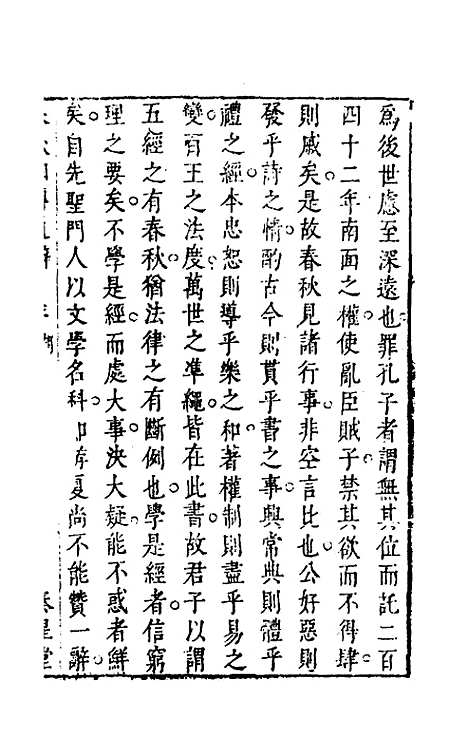 爲後世慮至深遠也罪孔子者謂無其位而託二百
四十二年南面之權使亂臣賊子禁其欲而不得肆
則戚矣是故春秋見諸行事非空言比也公好惡則
發乎詩之情酌古今則貫乎書之事興常典則體乎
禮之經本忠恕則導乎樂之和著權制則盡乎易之
變百王之法度萬世之準繩皆在此書故君子以謂
五經之有春秋猶法律之有斷例也學是經者信窮
理之要矣不學是經而處大事決大疑能不惑者鮮
矣自先聖門人以文學名科如游夏尚不能贊一辭